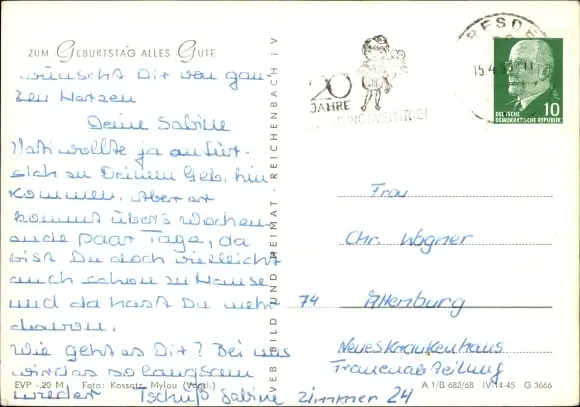 ZUM GEBURTSTAG ALLES GUTE
wünscht Dir von gan-
zen Herzen
Deine Sabine
Vati wollte ja an
sich zu Deinem Geb. hin
kommen. Aber er
kommt über's Wochen-
ende paar Tage, da
bist Du doch vielleicht
auch schon zu Hause
und da hast Du mehr
davon.
Wie geht es Dir? Bei uns
wird as so langsam
wieder Tschüß Sabine
EVP -,20 M Foto: Kossatz, Mylau (Vogtl.)
VEB BILD UND HEIMAT · REICHENBACH I. V
20
JAHRE
DRESDE
15.4
10
DEUTSCHE
DEMOKRATISCHE REPUBLIK
Frau
Chr. Wagner
74 Altenburg
Neues Krankenhaus
Frauenabteilung
Zimmer 24
A 1/B 682/68 IV-14-45 G 3666